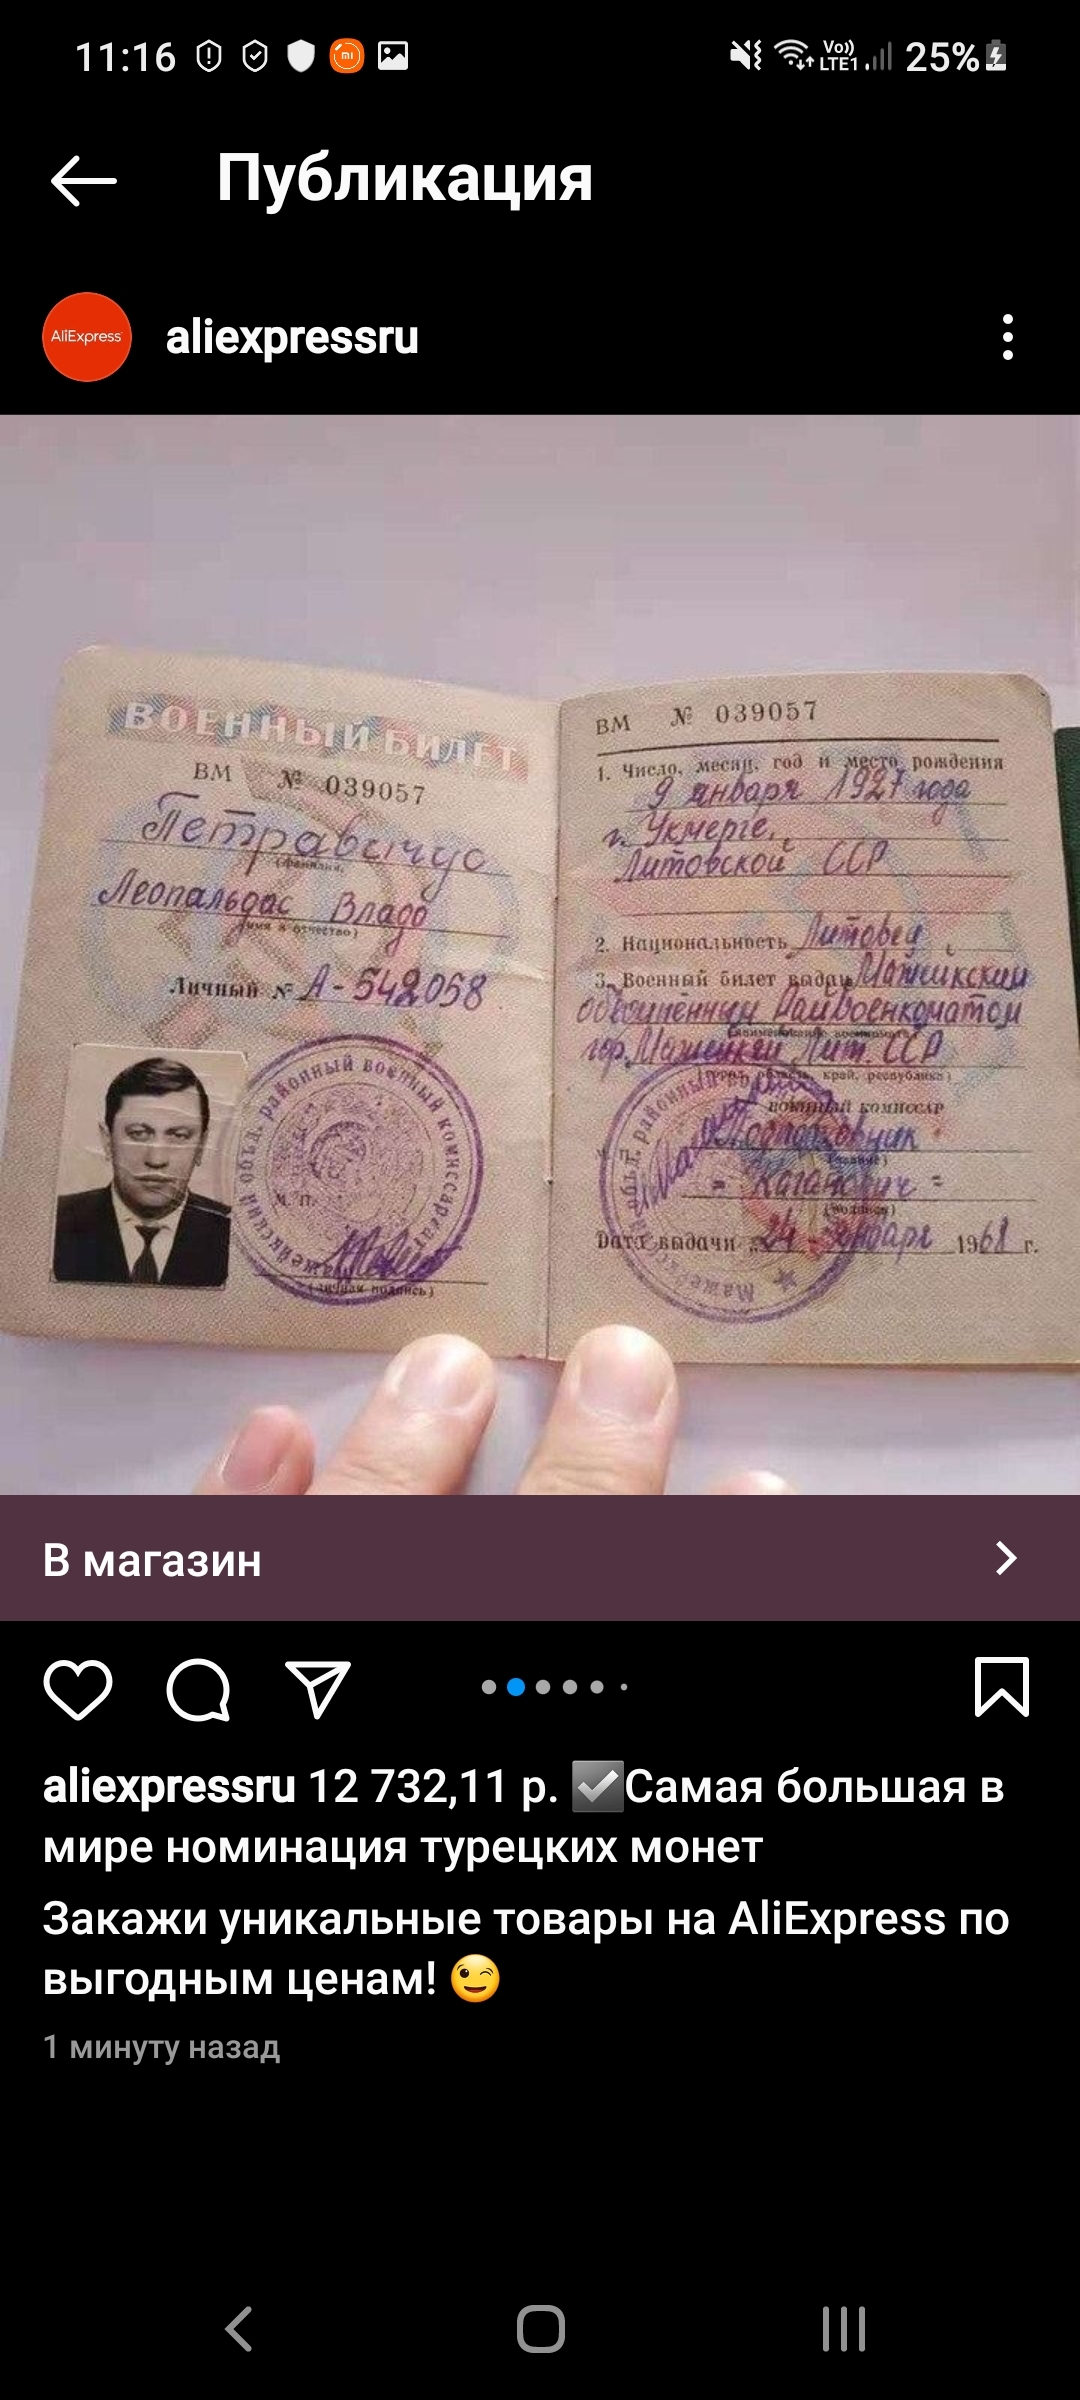 11:16
Vo))
LTE1
25%
Публикация
AliExpress
aliexpressru
ВОЕННЫЙ БИЛЕТ
ВМ № 039057
Петравичус
(фамилия)
Леопальдас Владо
(имя и отчество)
Личный № А-542058
М. П.
(личная подпись)
ВМ № 039057
1. Число, месяц, год и место рождения
9 января 1927 года
г. Укмерге,
Литовской ССР
2. Национальность Литовец
3. Военный билет выдан Мажейкским
объединённым Райвоенкоматом
гор. Мажейкяй Лит. ССР
край, республика)
военный комиссар
Подполковник
(звание)
= Каганович =
(подпись)
Дата выдачи „24“ января 1968 г.
В магазин
aliexpressru 12 732,11 р. ✅Самая большая в
мире номинация турецких монет
Закажи уникальные товары на AliExpress по
выгодным ценам! 😉
1 минуту назад